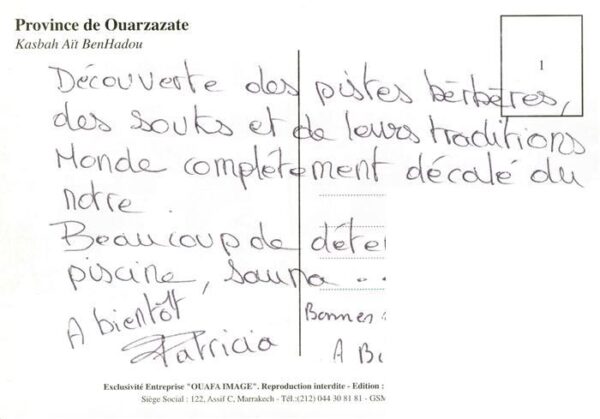 Province de Ouarzazate
Kasbah Aït BenHadou
1
Découverte des pistes bèrbères,
des souks et de leurs traditions
Monde complètement décalé du
notre.
Beaucoup de déte
piscine, sauna...
A bientôt
Patricia
Bonnes
A B
Exclusivité Entreprise "OUAFA IMAGE". Reproduction interdite - Edition :
Siège Social : 122, Assif C, Marrakech - Tél.:(212) 044 30 81 81 - GSM